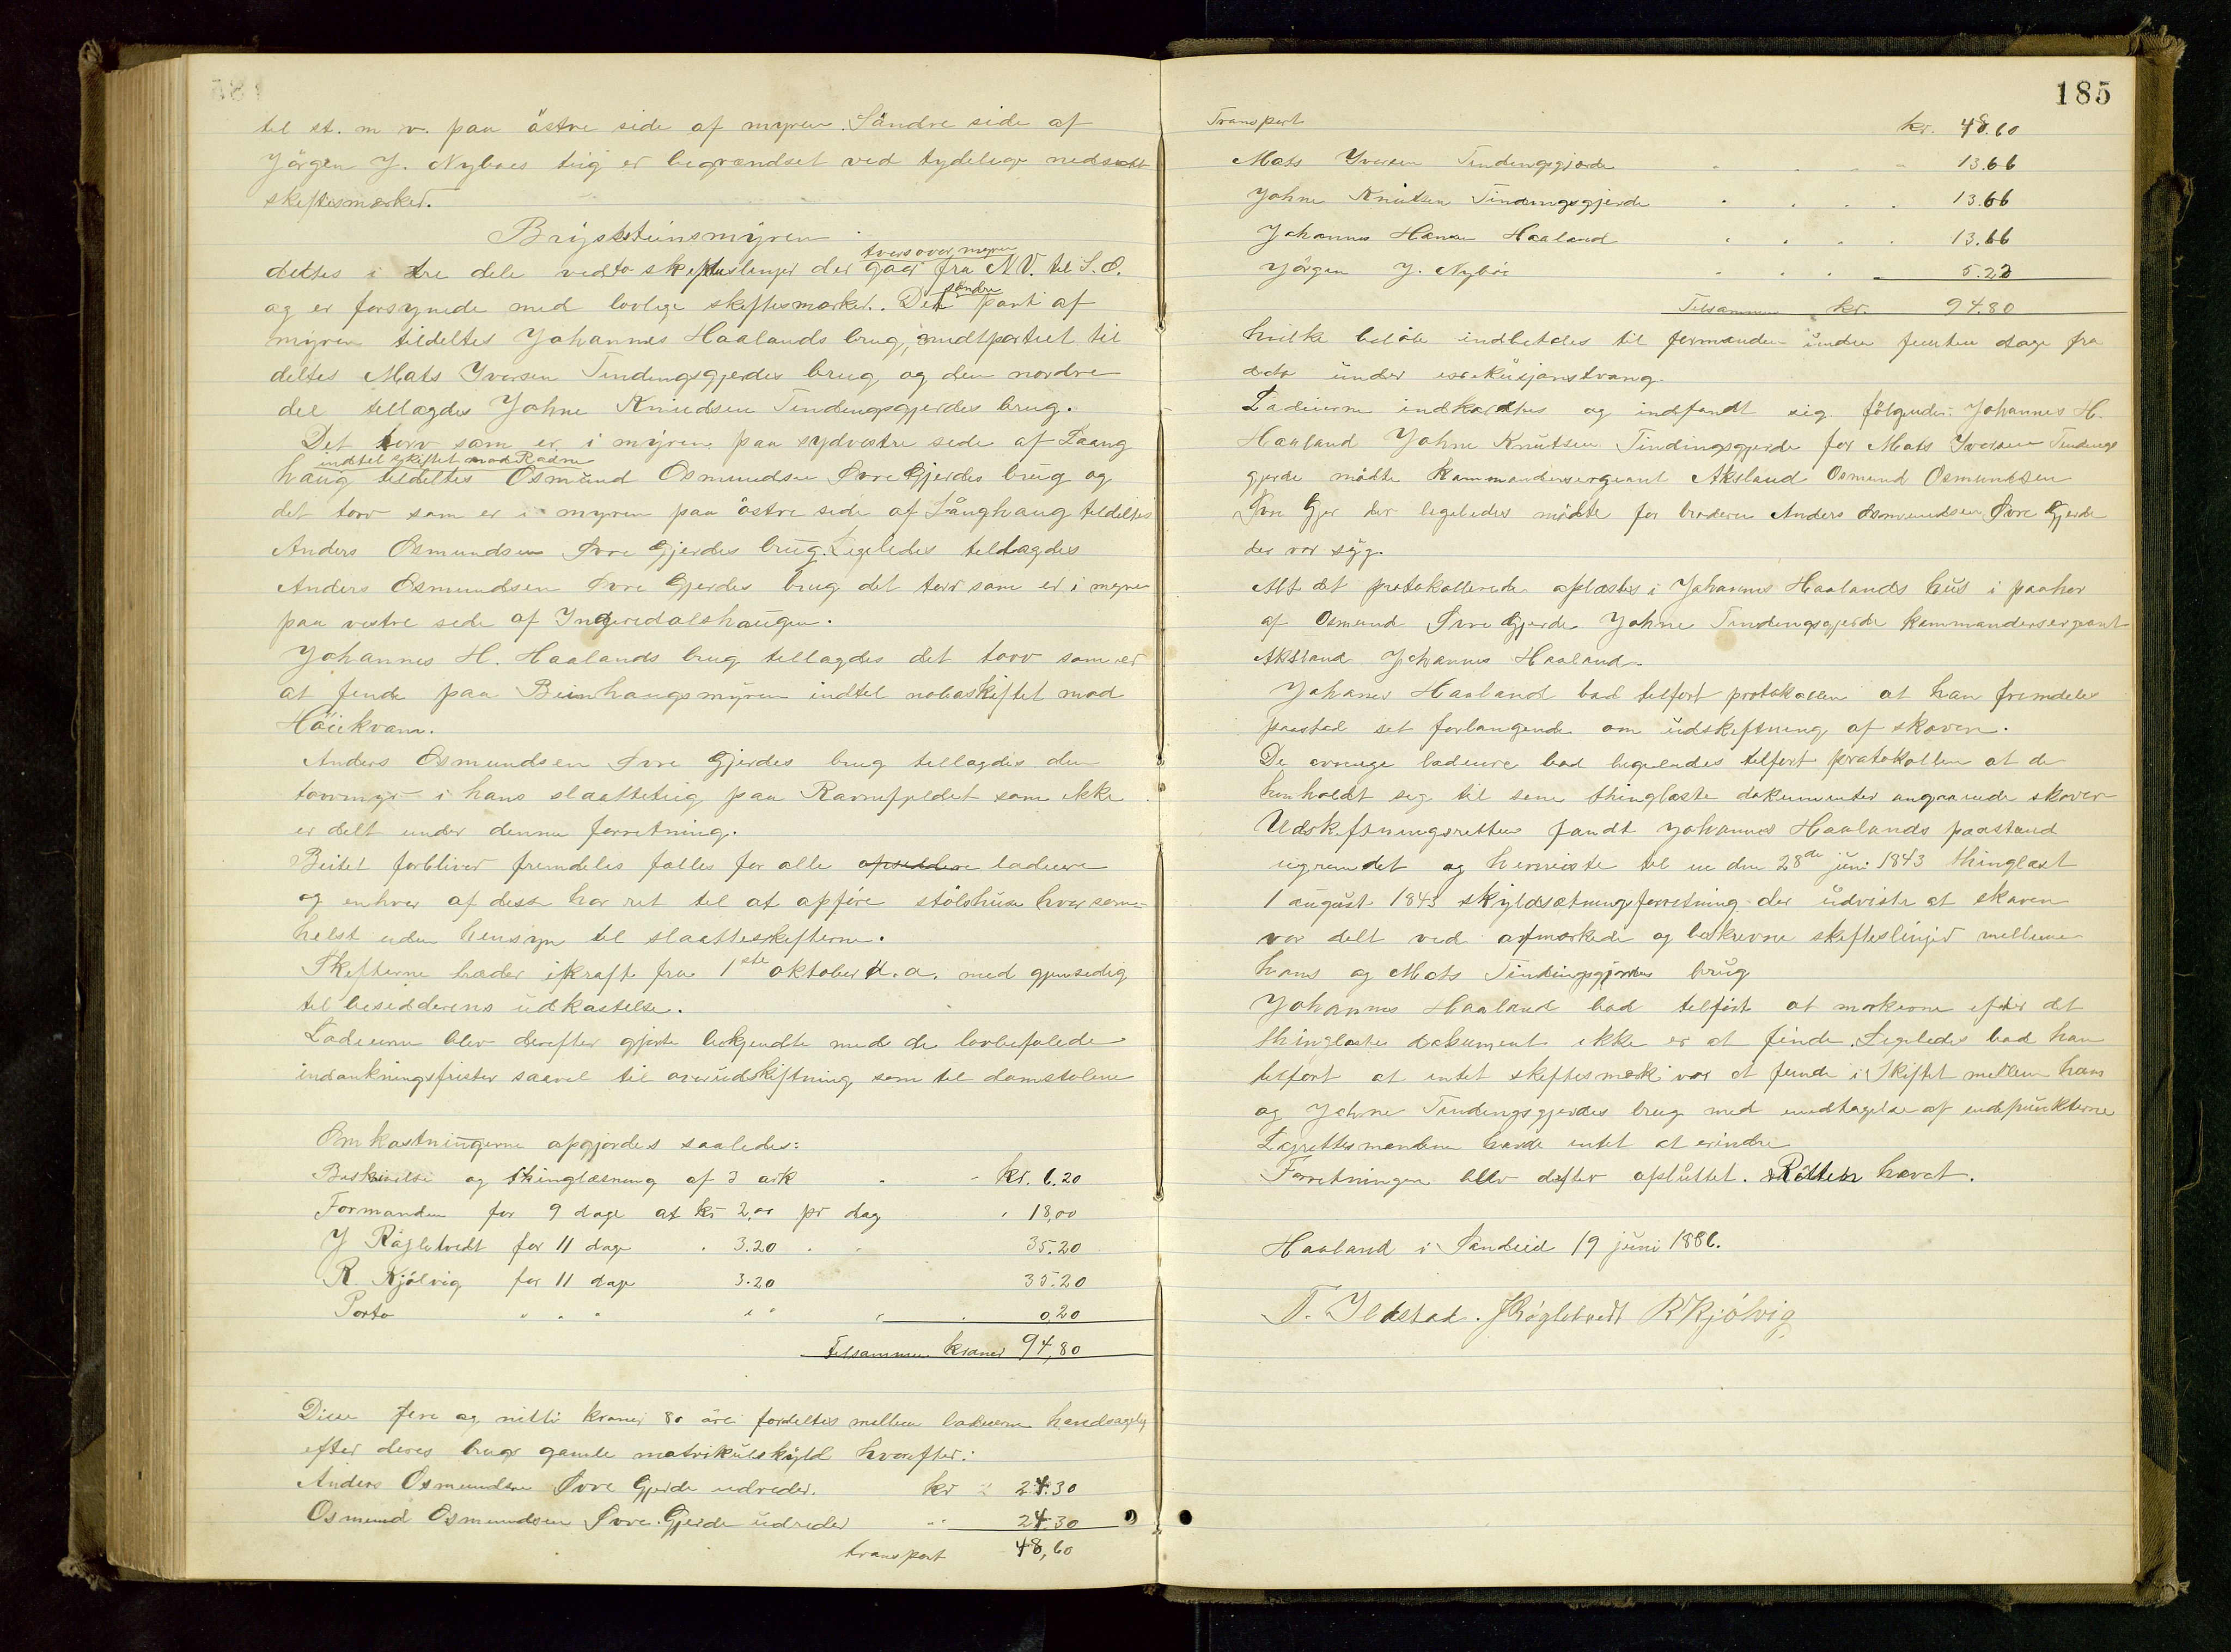 til st. m v. paa östre side af myren. Söndre side af
Jörgen J. Nyböes teig er begrændset ved tydelige nedsatte
skeftesmærker.
Brýststeinsmýren.
deltes i tre dele ved to skefteslinjer der gaar tvers over myren fra N.V. til S.O.
og er forsynede med lovlige skeftesmærker. Det söndre parti af
mýren tildeltes Johannes Haalands brug, midtpartiet til
deltes Mats Iversen Tindingsgjerdes brug, og den nordre
del tillagdes Johne Knudsen Tindingsgjerdes brug.
Det torv som er i mýren paa sydvestre side af Laang
haug indtel skiftet mod Rädne tildeltes Osmund Osmundsen Övre Gjerdes brug og
det torv som er i myren paa östre side af Långhaug tildeltes
Anders Osmundsen Övre Gjerdes brug. Ligeledes tillagdes
Anders Osmundsen Övre Gjerdes brug det torv som er i myren
paa vestre side af Ingeredalshaugen.
Johannes H. Haalands brug tillagdes det torv som er
at finde paa Beinhaugsmýren indtel naboskiftet mod
Höiekvam.
Anders Osmundsen Övre Gjerdes brug tillagdes den
torvmyr i hans slaatteteig paa Ravnefjeldet som ikke
er delt under denne forretning.
Beitet forbliver fremdeles fælles for alle opsiddere lodeiere
og enhver af disse har ret til at opföre stölshuse hvor som
helst uden hensyn til slaatteskefterne.
Skefterne træder ikraft fra 1ste oktober d.a. med gjensidig
til besidderens udkastelse.
Lodeierne blev derefter gjorte bekjendte med de lovbefalede
indankningsfrister saavel til overudskiftning som til domstolene
Omkostningerne opgjordes saaledes:
Beskrivelse og thinglæsning af 3 ark - kr. 6.20
Formanden for 9 dage at kr 2,00 pr dag " 18,00
J Rögletvedt for 11 dage " 3.20 " 35.20
R. Kjölvig for 11 dage 3.20 35.20
Porto " " " " " 0,20
Tilsammen kroner 94,80
Disse fire og nitti kroner 80 öre fordeltes mellem lodeierne
efter deres brugs gamle matrikulskýld hvorefter:
Anders Osmundsen Övre Gjerde udreder. kr 24.30
Osmund Osmundsen Övre Gjerde udreder " 24.30
transport 48,60
185
Transport kr. 48.60
Mats Iversen Tindingsgjerde - 13.66
Johne Knutsen Tindingsgjerde . . . . 13.66
Johannes Hansen Haaland . . . . 13.66
Jörgen J. Nyböe . . . 5.22
Tilsammen kr. 94.80
hvilke belöb indbetales til formanden inden femten dage fra
dato under exekusjonstvang.
Lodeierne indkaldtes og indfandt sig fölgende: Johannes H.
Haaland Johne Knutsen Tindingsgjerde for Mats Iversen Tindings
gjerde mödte Kommandersergeant Aksland Osmund Osmundsen
Övre Gjer der ligeledes mödte for broderen Anders Osmundsen Övre Gjerde
der var syg.
Alt det protokollerede oplæstes i Johannes Haalands hus i paahör
af Osmund Övre Gjerde Johne Tindingsgjerde kommandersergeant
Aksland Johannes Haaland.
Johanes Haaland bad tilfört protokollen at han fremdeles
paastod set forlangende om udskeftning af skoven.
De övrige lodeiere bad ligeledes tilfört protokollen at de
henholdt seg til sine thinglæste dokumenter angaaende skoven
Udskeftningsretten fandt Johannes Haalands paastand
ugrundet og henviste til en den 28de juni 1843 thinglæst
1 august 1843 skýldsætningsforretning der udviste at skoven
var delt ved opmærkede og beskrevne skefteslinjer mellem
hans og Mats Tindingsgjerdes brug
Johannes Haaland bad tilfört at mærkerne efter det
thinglæste dokument ikke er at finde. Ligeledes bad han
tilfört at intet skeftesmerk var at finde i Skiftet mellem hans
og Johne Tindingsgjerdes brug med undtagelse af endepunkterne
Lagrettesmændene havde intet at erindre
Forretningen blev derefter afsluttet. Retten hævet.
Haaland i Sandeid 19 juni 1886.
T. Ilstad. J Rögletvedt R Kjölvig